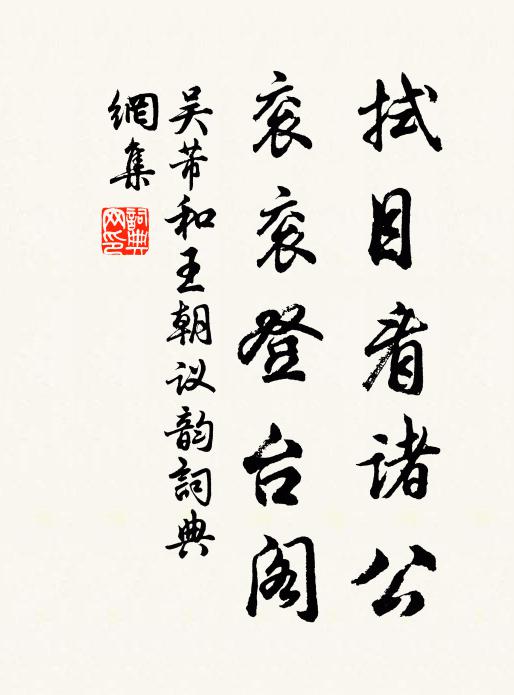 拭目看诸公
衮衮登台阁
吴芾和王朝议韵詞典
網集
詞典网印